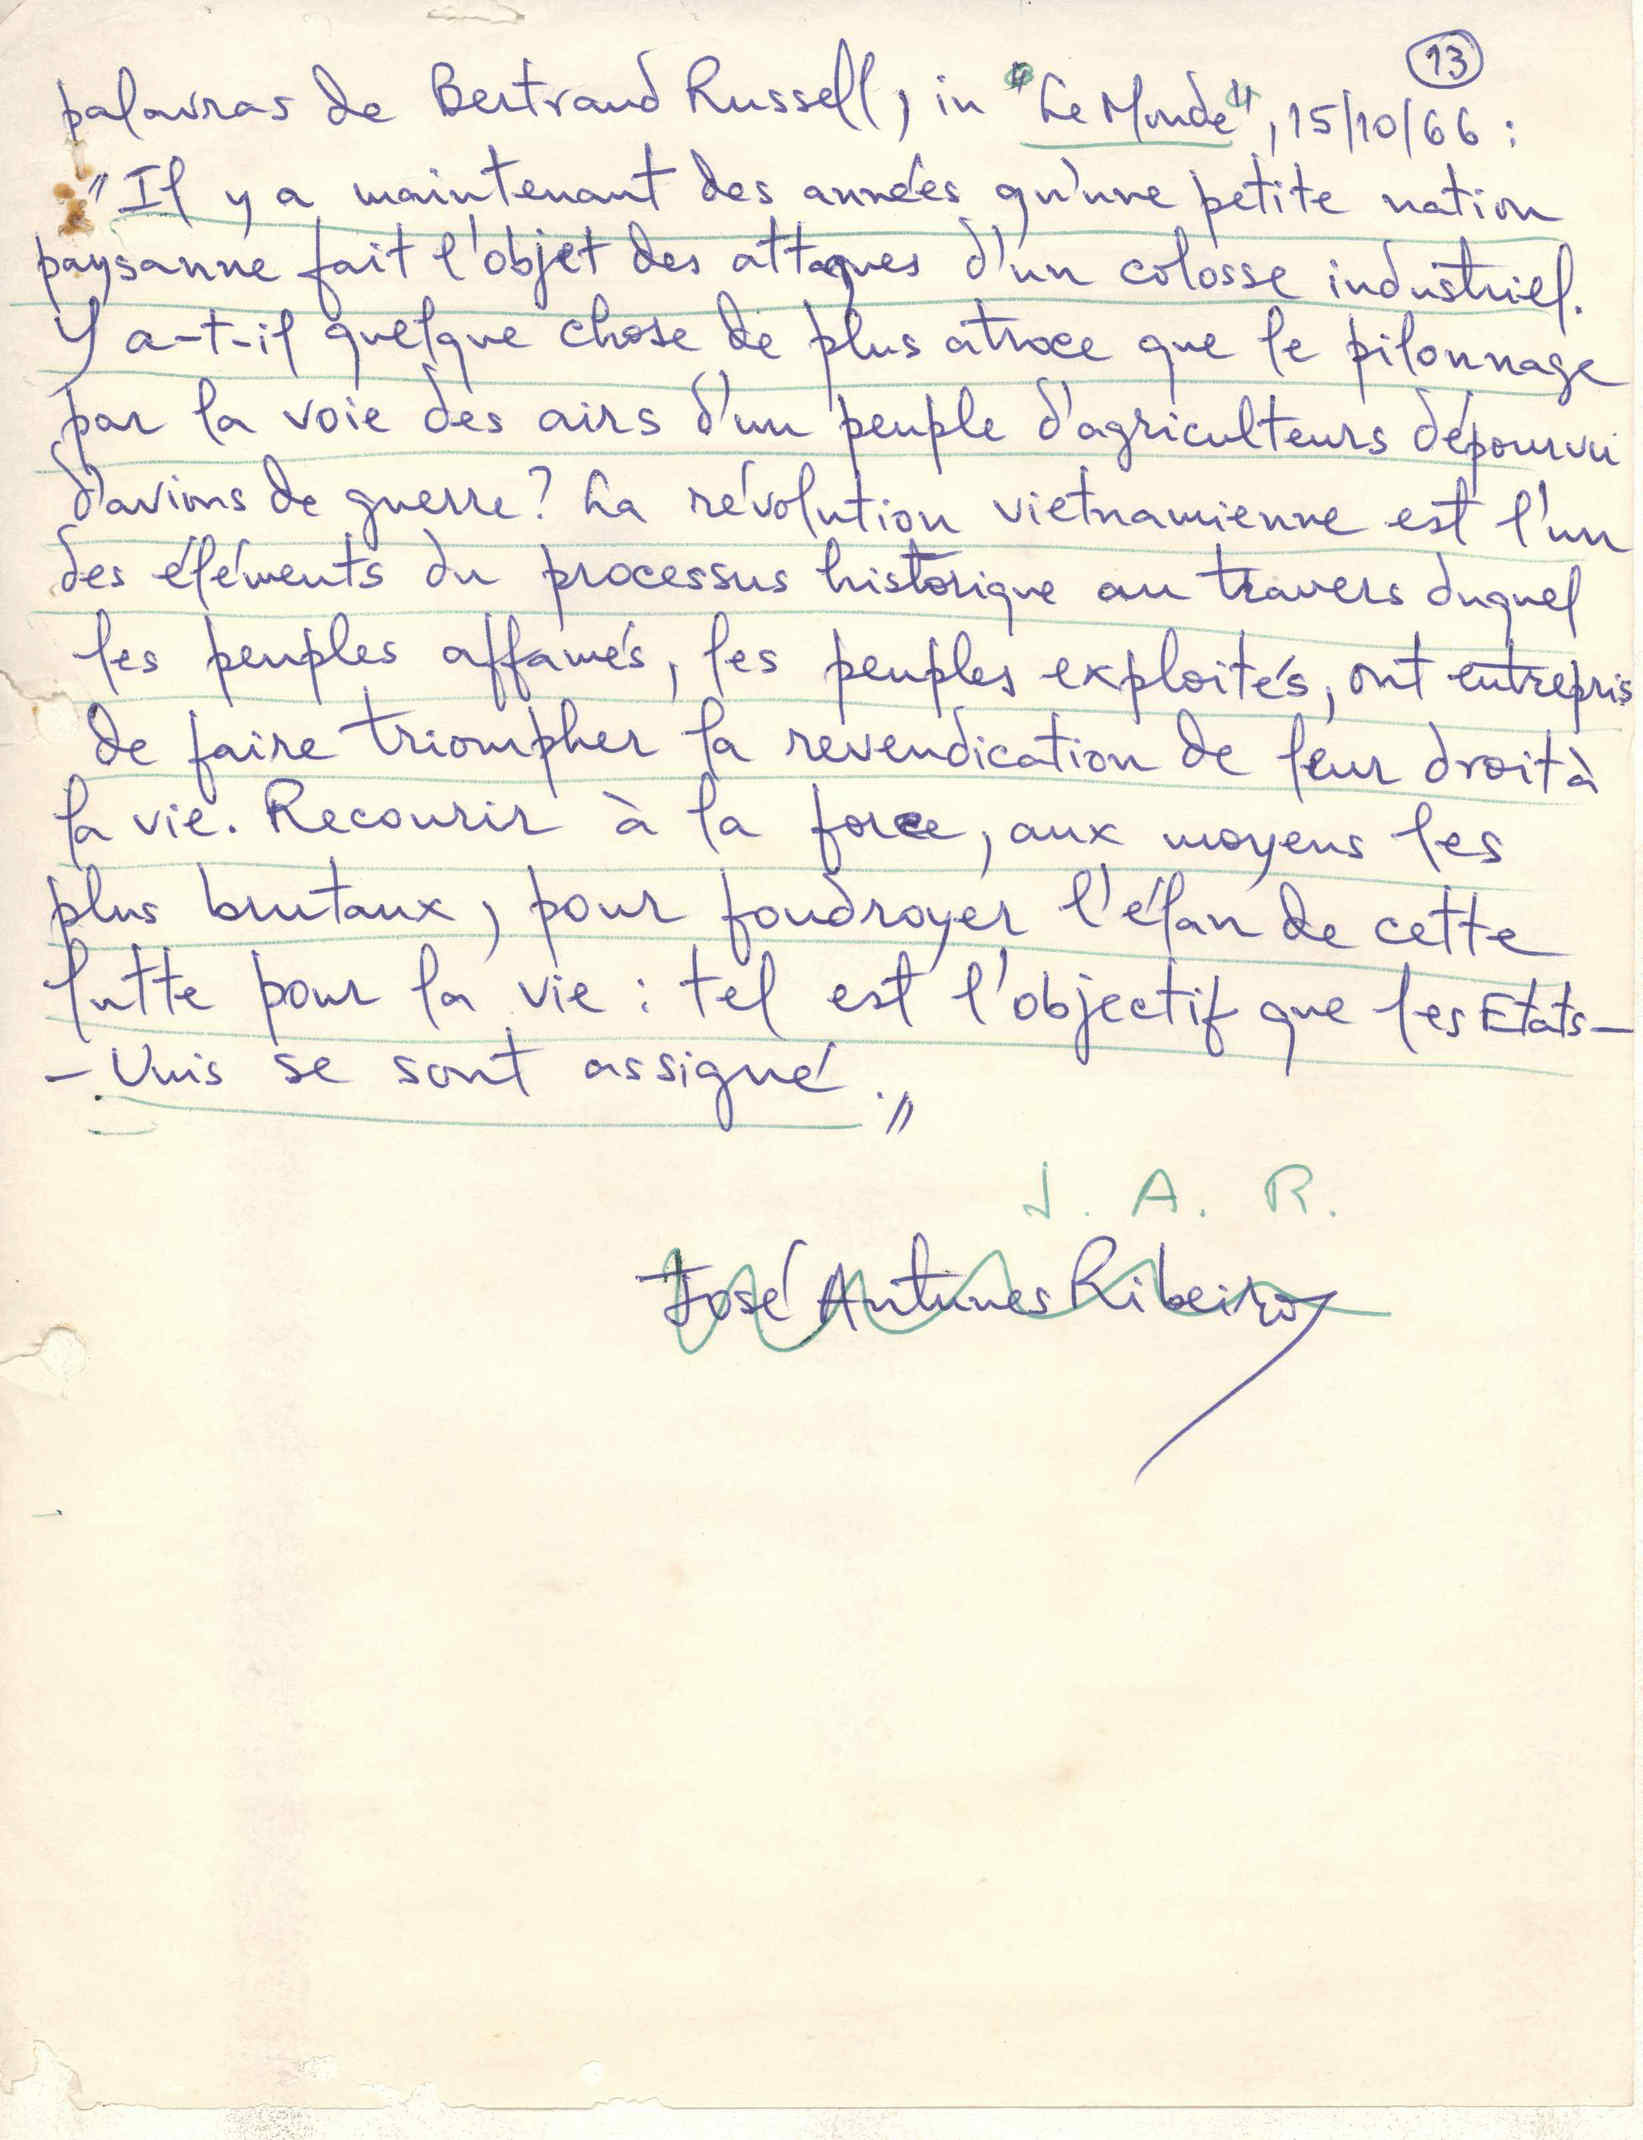 13
palavras de Bertrand Russell, in "Le Monde", 15/10/66:
"Il y a maintenant des années qu'une petite nation
paysanne fait l'objet des attaques d'un colosse industriel.
Y a-t-il quelque chose de plus atroce que le pilonnage
par la voie des airs d'un peuple d'agriculteurs dépourvu
d'avions de guerre? La révolution vietnamienne est l'un
des éléments du processus historique au travers duquel
les peuples affamés, les peuples exploités, ont entrepris
de faire triompher la revendication de leur droit à
la vie. Recourir à la force, aux moyens les
plus brutaux, pour foudroyer l'élan de cette
lutte pour la vie: tel est l'objectif que les Etats-
-Unis se sont assigné."
J. A. R.
José Antunes Ribeiro